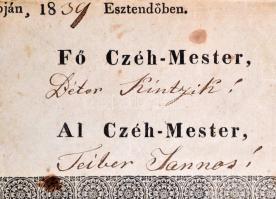 pján, 1839 Esztendőben.
Fő Czéh-Mester,
Détor Kintzik!
Al Czéh-Mester,
Teiber Jannos!